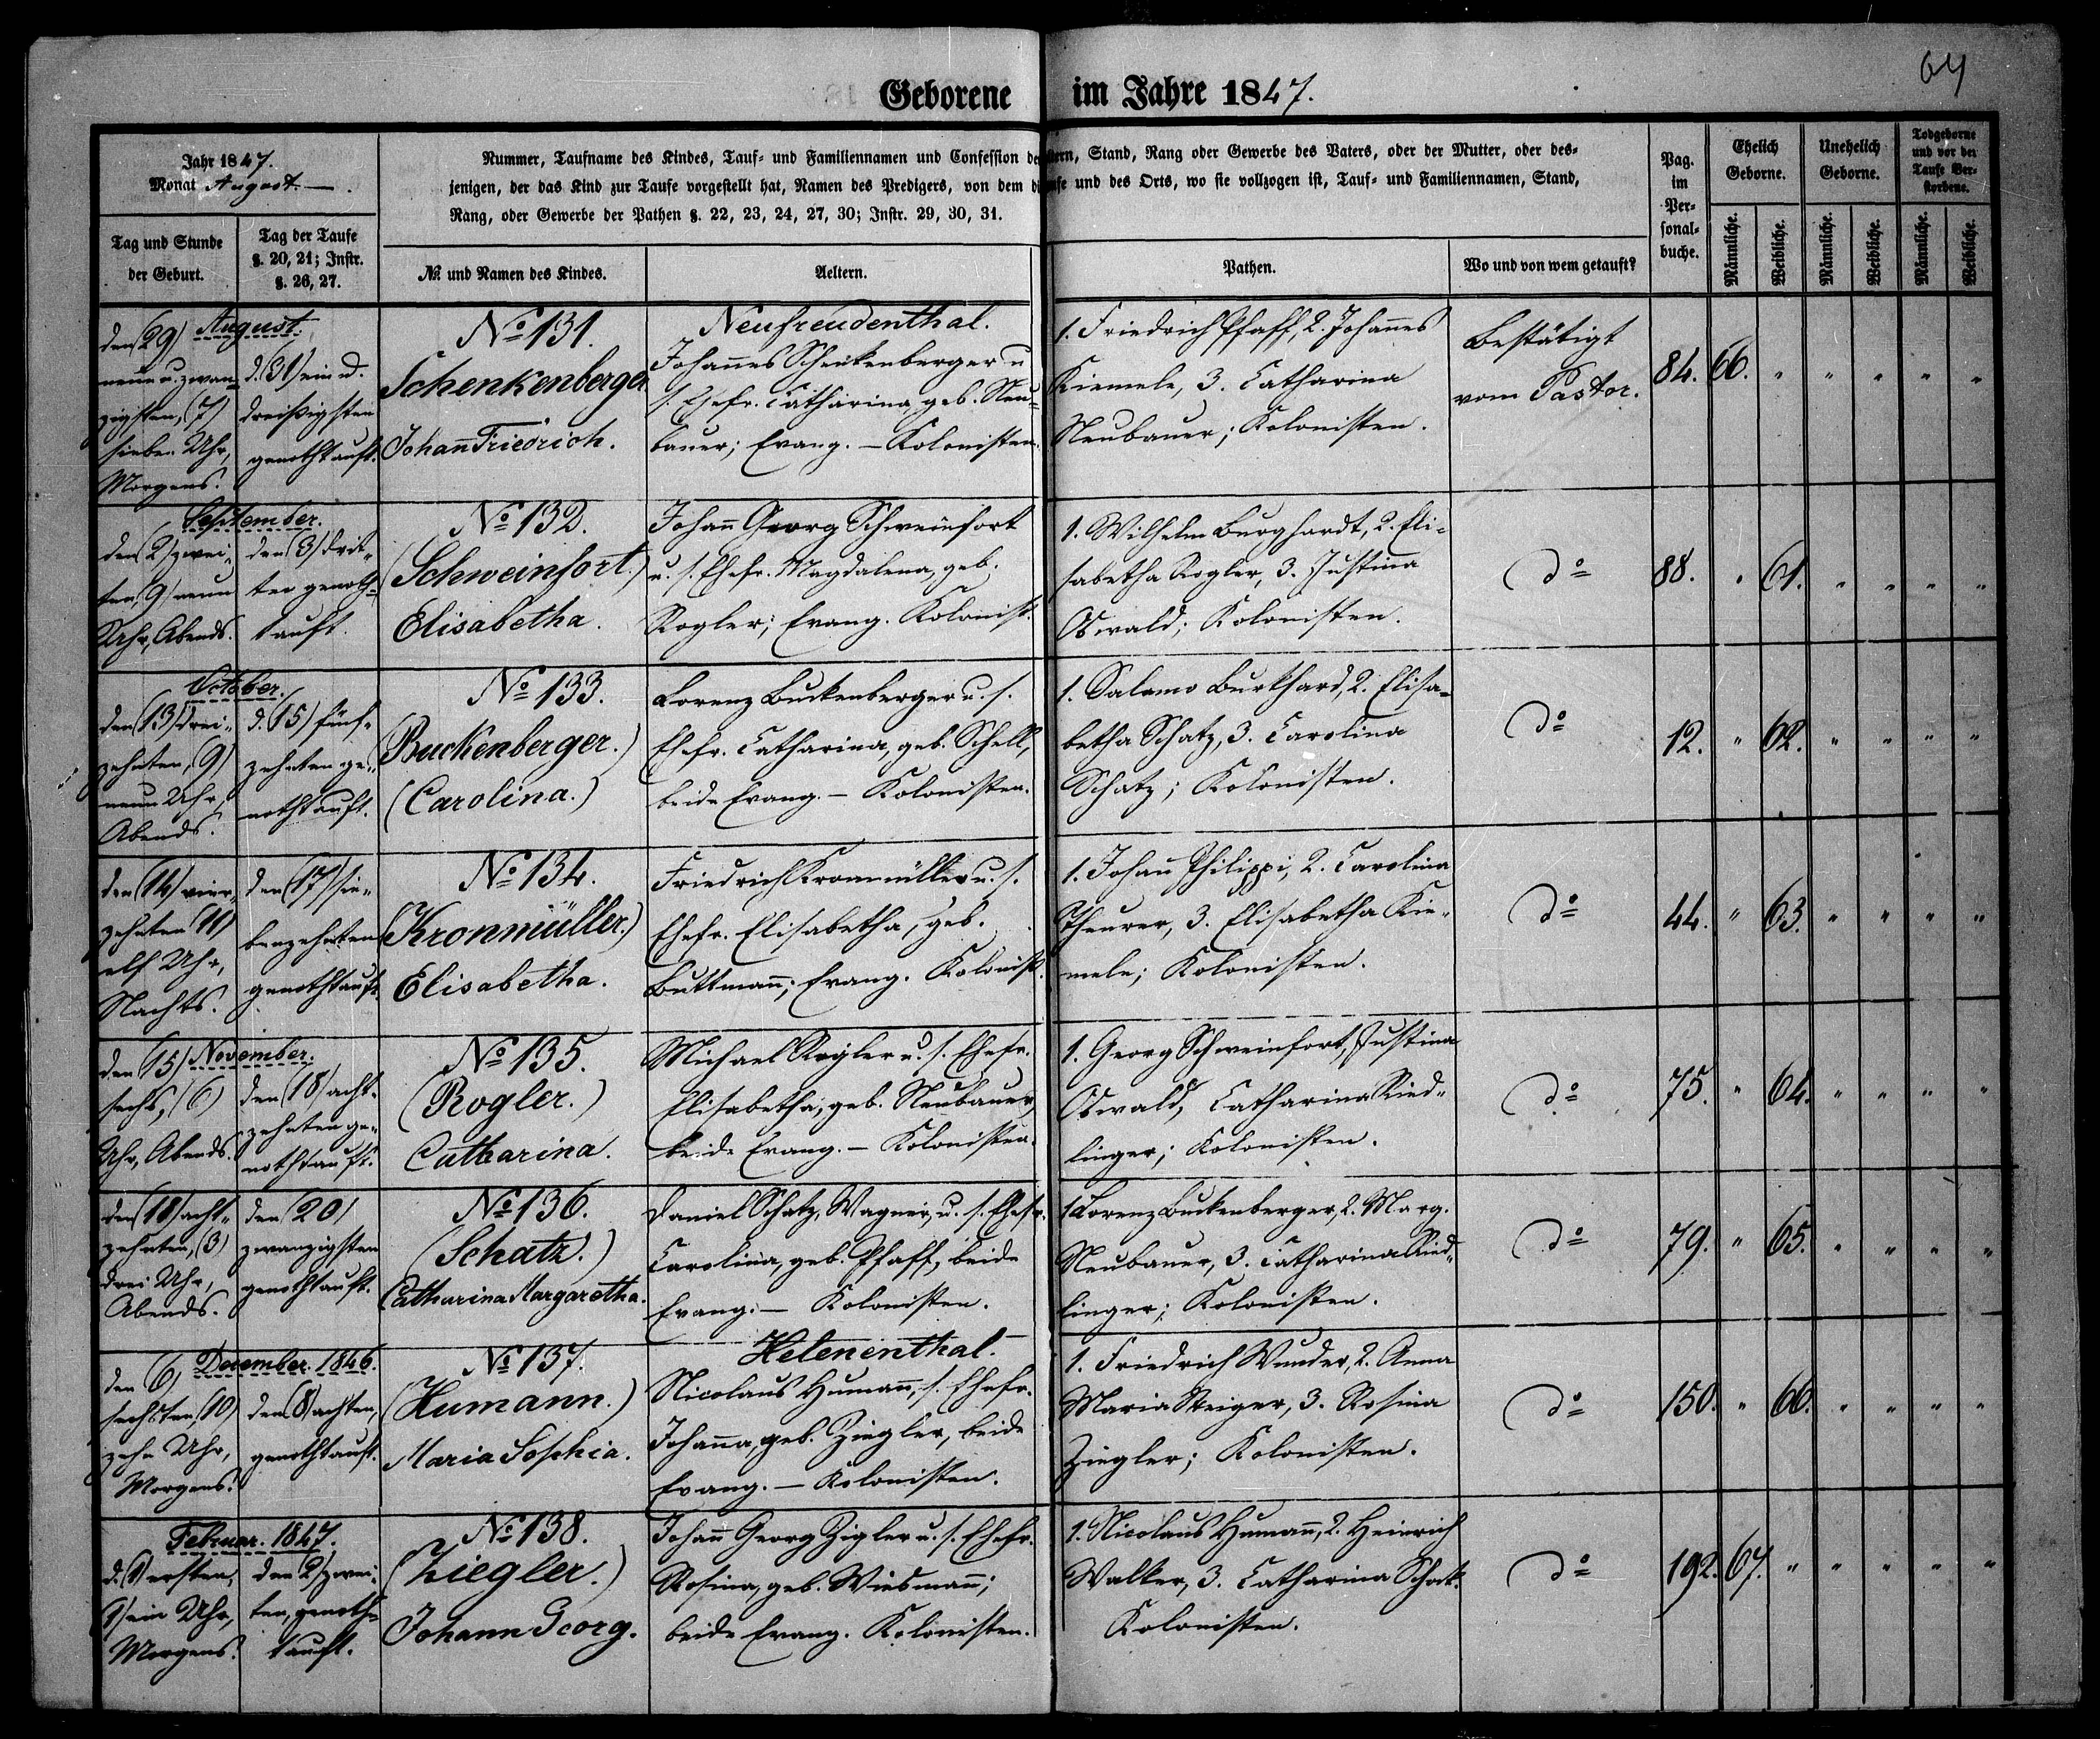 64
Geborene im Jahre 1847.
Jahr 1847.
Monat August. —
Nummer, Taufname des Kindes, Tauf- und Familiennamen und Confession der Aeltern, Stand, Rang oder Gewerbe des Vaters, oder der Mutter, oder des-
jenigen, der das Kind zur Taufe vorgestellt hat, Namen des Predigers, von dem die Taufe und des Orts, wo sie vollzogen ist, Tauf- und Familiennamen, Stand,
Rang, oder Gewerbe der Pathen §. 22, 23, 24, 27, 30; Instr. 29, 30, 31.
Pag.
im
Per-
sonal-
buche.
Ehelich
Geborne.
Unehelich
Geborne.
Todgeborne
und vor der
Taufe Ver-
storbene.
Tag und Stunde
der Geburt.
Tag der Taufe
§. 20, 21; Instr.
§. 26, 27.
№ und Namen des Kindes.
Aeltern.
Pathen.
Wo und von wem getauft?
Männliche.
Weibliche.
Männliche.
Weibliche.
Männliche.
Weibliche.
August.
den (29)
neun u. zwan-
zigsten, (7)
sieben Uhr,
Morgens.
d. (31) ein u.
dreißigsten
genothtauft.
No 131.
Schenkenberger
Johann Friedrich.
Neufreudenthal.
Johannes Schenkenberger u
s. Ehefr. Catharina, geb. Neu-
bauer; Evang. — Kolonisten.
1. Friedrich Pfaff, 2. Johannes
Kiemele, 3. Catharina
Neubauer; Kolonisten.
Bestätigt
vom Pastor.
84. 66. " " " " "
September.
den (2) zwei-
ten, (9) neun
Uhr, Abends.
den (3) drit-
ten genoth-
tauft.
No 132.
(Schweinfort.)
Elisabetha.
Johann Georg Schweinfort
u. s. Ehefr. Magdalena, geb.
Rogler; Evang. Kolonist.
1. Wilhelm Burghardt, 2. Eli-
sabetha Rogler, 3. Justina
Oswald; Kolonisten.
do
88. " 61. " " " "
October.
den (13) drei-
zehnten, (9)
neun Uhr,
Abends.
d. (15) fünf-
zehnten ge-
nothtauft.
No 133.
(Buckenberger.)
(Carolina.)
Lorenz Buckenberger u. s.
Ehefr. Catharina, geb. Schell,
beide Evang. — Kolonisten.
1. Salamo Burkhard, 2. Elisa-
betha Schatz, 3. Carolina
Schatz; Kolonisten.
do
12. " 62. " " " "
den (14) vier-
zehnten (11)
elf Uhr,
Nachts.
den (17) sie-
benzehnten
genothtauft.
No 134.
(Kronmüller.)
Elisabetha.
Friedrich Kronmüller u. s.
Ehefr. Elisabetha, geb.
Buttmann; Evang. Kolonist.
1. Johann Philippi, 2. Carolina
Theurer, 3. Elisabetha Kie-
mele; Kolonisten.
do
44. " 63. " " " "
November.
den (15)
sechs, (6)
Uhr, Abends.
den (18) acht-
zehnten ge-
nothtauft.
No 135.
(Rogler.)
Catharina.
Michael Rogler u. s. Ehefr.
Elisabetha, geb. Neubauer,
beide Evang. — Kolonisten.
1. Georg Schweinfort, Justina
Oswald, Catharina Ried-
linger; Kolonisten.
do
75. " 64. " " " "
den (18) acht-
zehnten, (3)
drei Uhr,
Abends.
den (20)
zwanzigsten
genothtauft.
No 136.
(Schatz.)
Catharina Margaretha.
Daniel Schatz, Wagner, u. s. Ehefr.
Carolina, geb. Pfaff, beide
Evang. — Kolonisten.
1. Lorenz Buckenberger, 2. Marg.
Neubauer, 3. Catharina Ried-
linger; Kolonisten.
do
79. " 65. " " " "
December. 1846.
den (6)
sechsten, (10)
zehn Uhr,
Morgens.
den (8) achten,
genothtauft.
No 137.
(Humann.)
Maria Sophia.
Helenenthal.
Nicolaus Humann, s. Ehefr.
Johanna, geb. Ziegler, beide
Evang. — Kolonisten.
1. Friedrich Wunder, 2. Anna
Maria Steiger, 3. Rosina
Ziegler; Kolonisten.
do
150. " 66. " " " "
Februar. 1847.
d. (1) ersten,
(1) ein Uhr,
Morgens.
den (2) zwei-
ten, genoth-
tauft.
No 138.
(Ziegler.)
Johann Georg.
Johann Georg Zigler u. s. Ehefr.
Rosina, geb. Wiedmann;
beide Evang. Kolonisten.
1. Nicolaus Humann, 2. Heinrich
Walker, 3. Catharina Schock.
Kolonisten.
do
192. 67. " " " " "